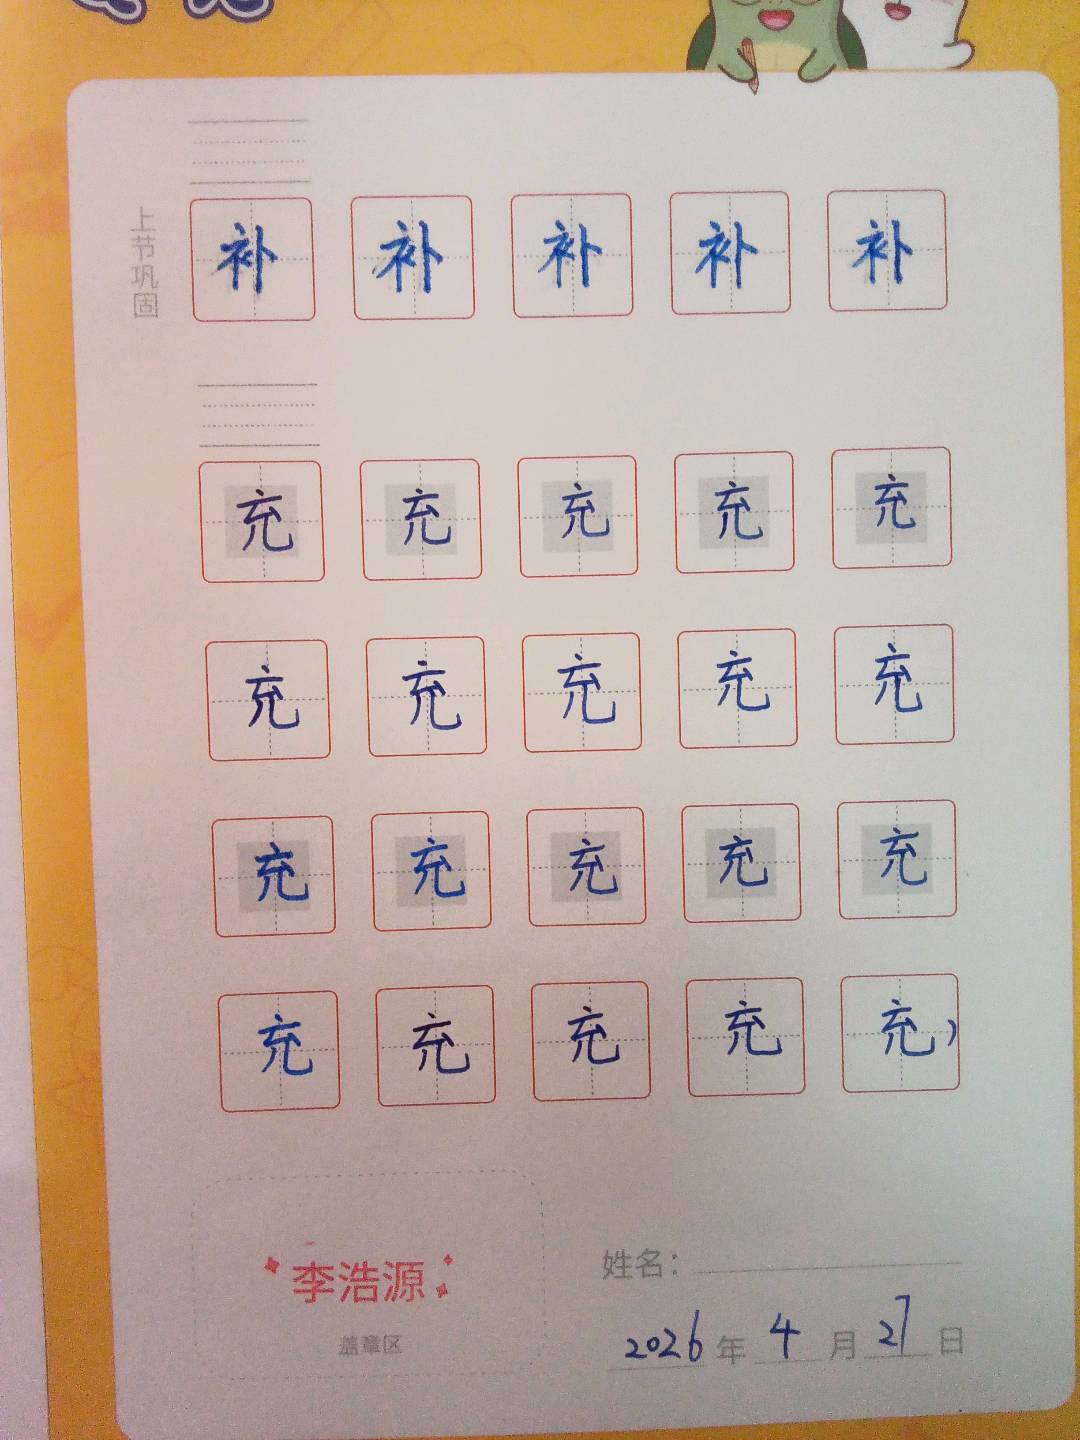 上节巩固
补 补 补 补 补
充 充 充 充 充
充 充 充 充 充
充 充 充 充 充
充 充 充 充 充
李浩源
盖章区
姓名：
2026年4月27日